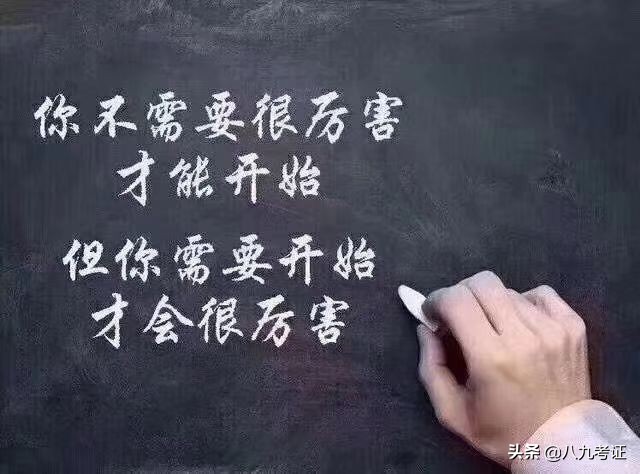 你不需要很厉害
才能开始
但你需要开始
才会很厉害
头条@八九考证